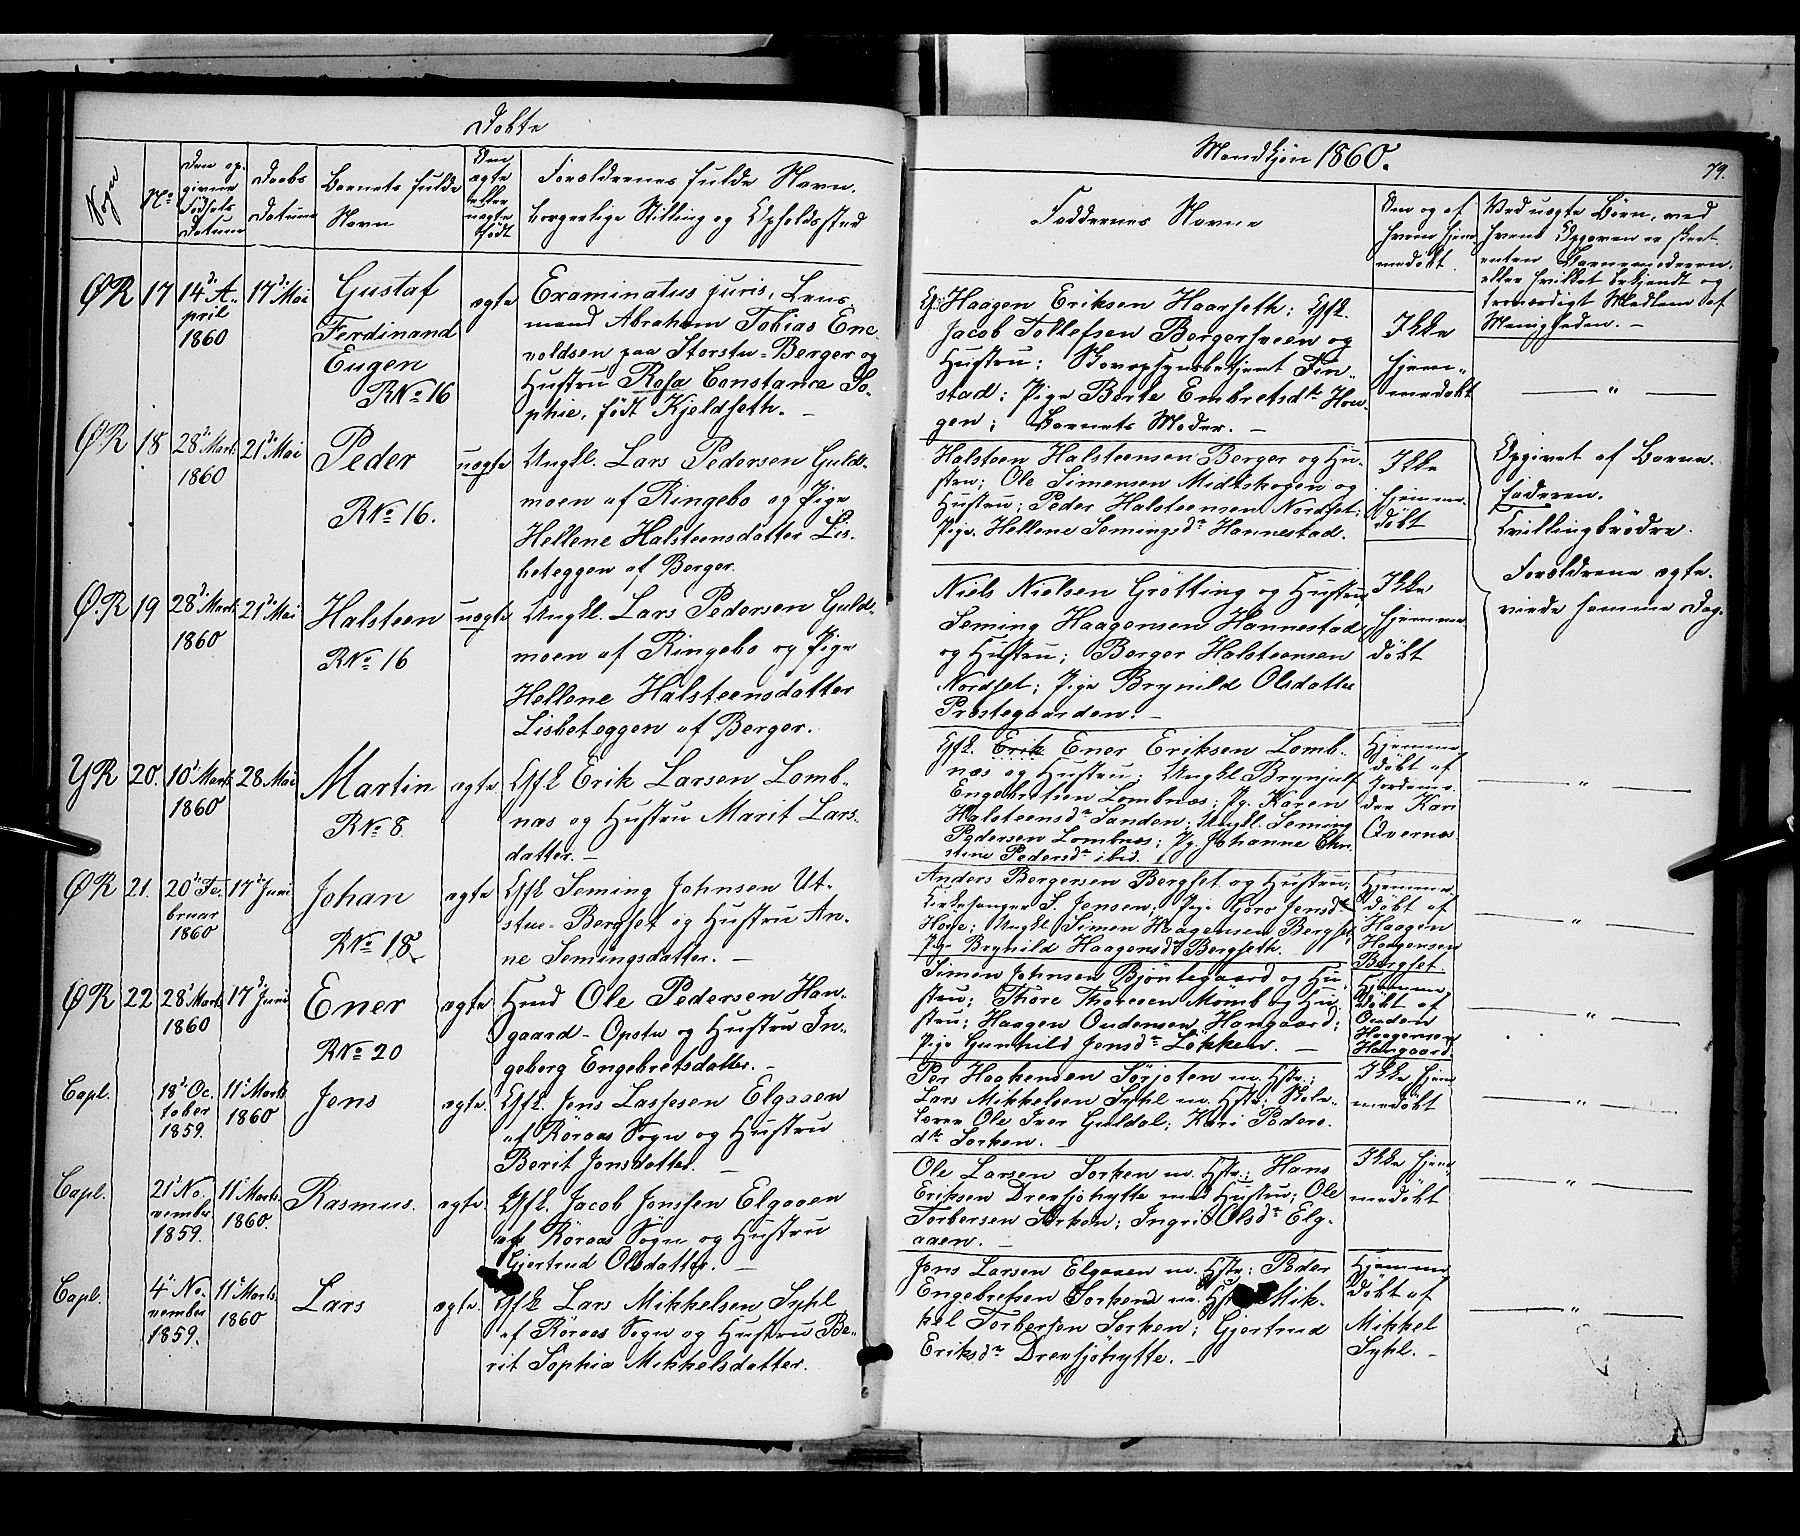 Døbte
Mandkjøn 1860.
79.
Sogn
No
Den op-
givne
Fødsels
Datum
Daabs
Datum
Barnets fulde
Navn
Om
ægte
eller
uægte
født
Forældrenes fulde Navn,
borgerlige Stilling og Opholdssted
Faddernes Navne
Om og af
hvem hjem-
medøbt.
Ved uægte Børn, ved
hvens Opgaven er skeet
enten Barnemoderen,
eller hvilket bekjendt og
troværdigt Medlem af
Menigheden. -
ØR 17 14de A-
pril
1860
17de Mai
Gustaf
Ferdinand
Eugen
RNo 16
ægte
Examinatus juris, Lens-
mand Abraham Tobias Ene-
voldsen paa Storstu-Berger og
Hustru Rosa Constance So-
phie, født Kjeldseth. -
Haagen Eriksen Haarseth; Gfk.
Jacob Tollefsen Bergersveen og
Hustru; Skovopsynsbetjent Fin-
stad; Pige Berte Embretsdtr Hou-
gen; Barnets Moder. -
Ikke
hjem-
medøbt
— " —
ØR 18 28de Marts
1860
21de Mai
Peder
RNo 16.
uægte
Ungkl. Lars Pedersen Guld-
moen af Ringebo og Pige
Hellene Halsteensdatter Lis-
beteggen af Berger.
Halsteen Halsteensen Berger og Hu-
stru; Ole Simensen Midtskogen og
Hustru; Peder Halsteensen Nordset;
Pige Hellene Semingsdtr Hannestad.
Ikke
hjemme-
døbt
Opgivet af Barne-
faderen.
Tvillingbrødre.
Forældrene ægte-
viede samme Dag.
Ø.R 19 28de Marts
1860
21de Mai
Halsteen
RNo 16
uægte
Ungkl. Lars Pedersen Guld-
moen af Ringebo og Pige
Hellene Halsteensdatter
Lisbeteggen af Berger.
Niels Nielsen Grötting og Hustru;
Seming Haagensen Hannestad
og Hustru; Berger Halsteensen
Nordset; Pige Brynild Olsdatter
Præstegaarden. -
Ikke
hjemme-
døbt
YR 20. 10de Marts
1860
28 Mai
Martin
RNo 8.
ægte
Gfk Erik Larsen Lomb-
næs og Hustru Marit Lars-
datter. -
Gfk. Erik Ener Eriksen Lomb-
næs og Hustru; Ungkl Brynjulf
Engebretsen Lombnæs; Pg. Karen
Halsteensdtr Sanden; Ungkl. Seming
Pedersen Lombnæs; Pg. Johanne Chri
stine Pedersdtr ibid.
Hjemme-
døbt af
Jordemo-
der Kari
Qvernes
— " —
ØR 21. 20de Fe-
bruar
1860
17de Juni
Johan
RNo 18
ægte
Gfk Seming Johnsen Ut-
stue-Bergset og Hustru An-
ne Semingsdatter. -
Anders Bergersen Bergset og Hustru;
Kirkesanger S. Jensen; Pige Guro Jensdtr
Hove; Ungkl Simen Haagensen Bergset;
Pige Brynild Haagensdtr Bergseth.
Hjemme-
døbt af
Haagen
Haagensen
Bergset
— " —
ØR 22 28de Marts
1860
17de Juni
Ener
RNo 20
ægte
Hmd Ole Pedersen Han-
gaard-Opstu og Hustru In-
geborg Engebretsdatter. -
Simen Johnsen Bjöntegaard og Hu-
stru; Thore Thoresen Momb og Hu-
stru; Haagen Oudensen Hangaard;
Pige Gunhild Jonsdtr Løkken. -
Hjemme-
døbt af
Ouden
Haagensen
Hangaard
— " —
Capl. 18de Oc-
tober
1859.
11te Marts
1860
Jens
ægte.
Gfk. Jens Lassesen Elgaaen
af Röraas Sogn og Hustru
Berit Jonsdatter. -
Per Haakensen Sørjoten m. Hstr.;
Lars Mikkelsen Syhl m. Hstr; Skole-
lærer Ole Iver Guldal; Kari Peders-
dtr Sorken. -
Ikke hjem
medøbt
— " —
Capl. 21de No-
vember
1859.
11te Marts
1860.
Rasmus.
ægte.
Gfk. Jacob Jonssen Elgaaen
af Röraas Sogn og Hustru
Gjertrud Olsdatter. -
Ole Larsen Sorken m. Hstr; Hans
Eriksen Drevsjöhytte med Hustru; Ole
Torbersen Sorken; Ingri Olsdtr Elg-
aaen. -
Ikke hjem
medøbt
— " —
Capl. 4de No-
vember
1859.
11te Marts
1860
Lars
ægte.
Gfk Lars Mikkelsen Syhl
af Röraas Sogn og Hustru Be-
rit Sophia Mikkelsdatter.
Jens Larsen Elgaaen m. Hstr; Peder
Engebretsen Sorken m. Hstr; Mik-
kel Torbersen Sorken; Gjertrud
Eriksdtr Drevsjöhytte. -
Hjemme-
døbt af
Mikkel
Syhl. -
— " —